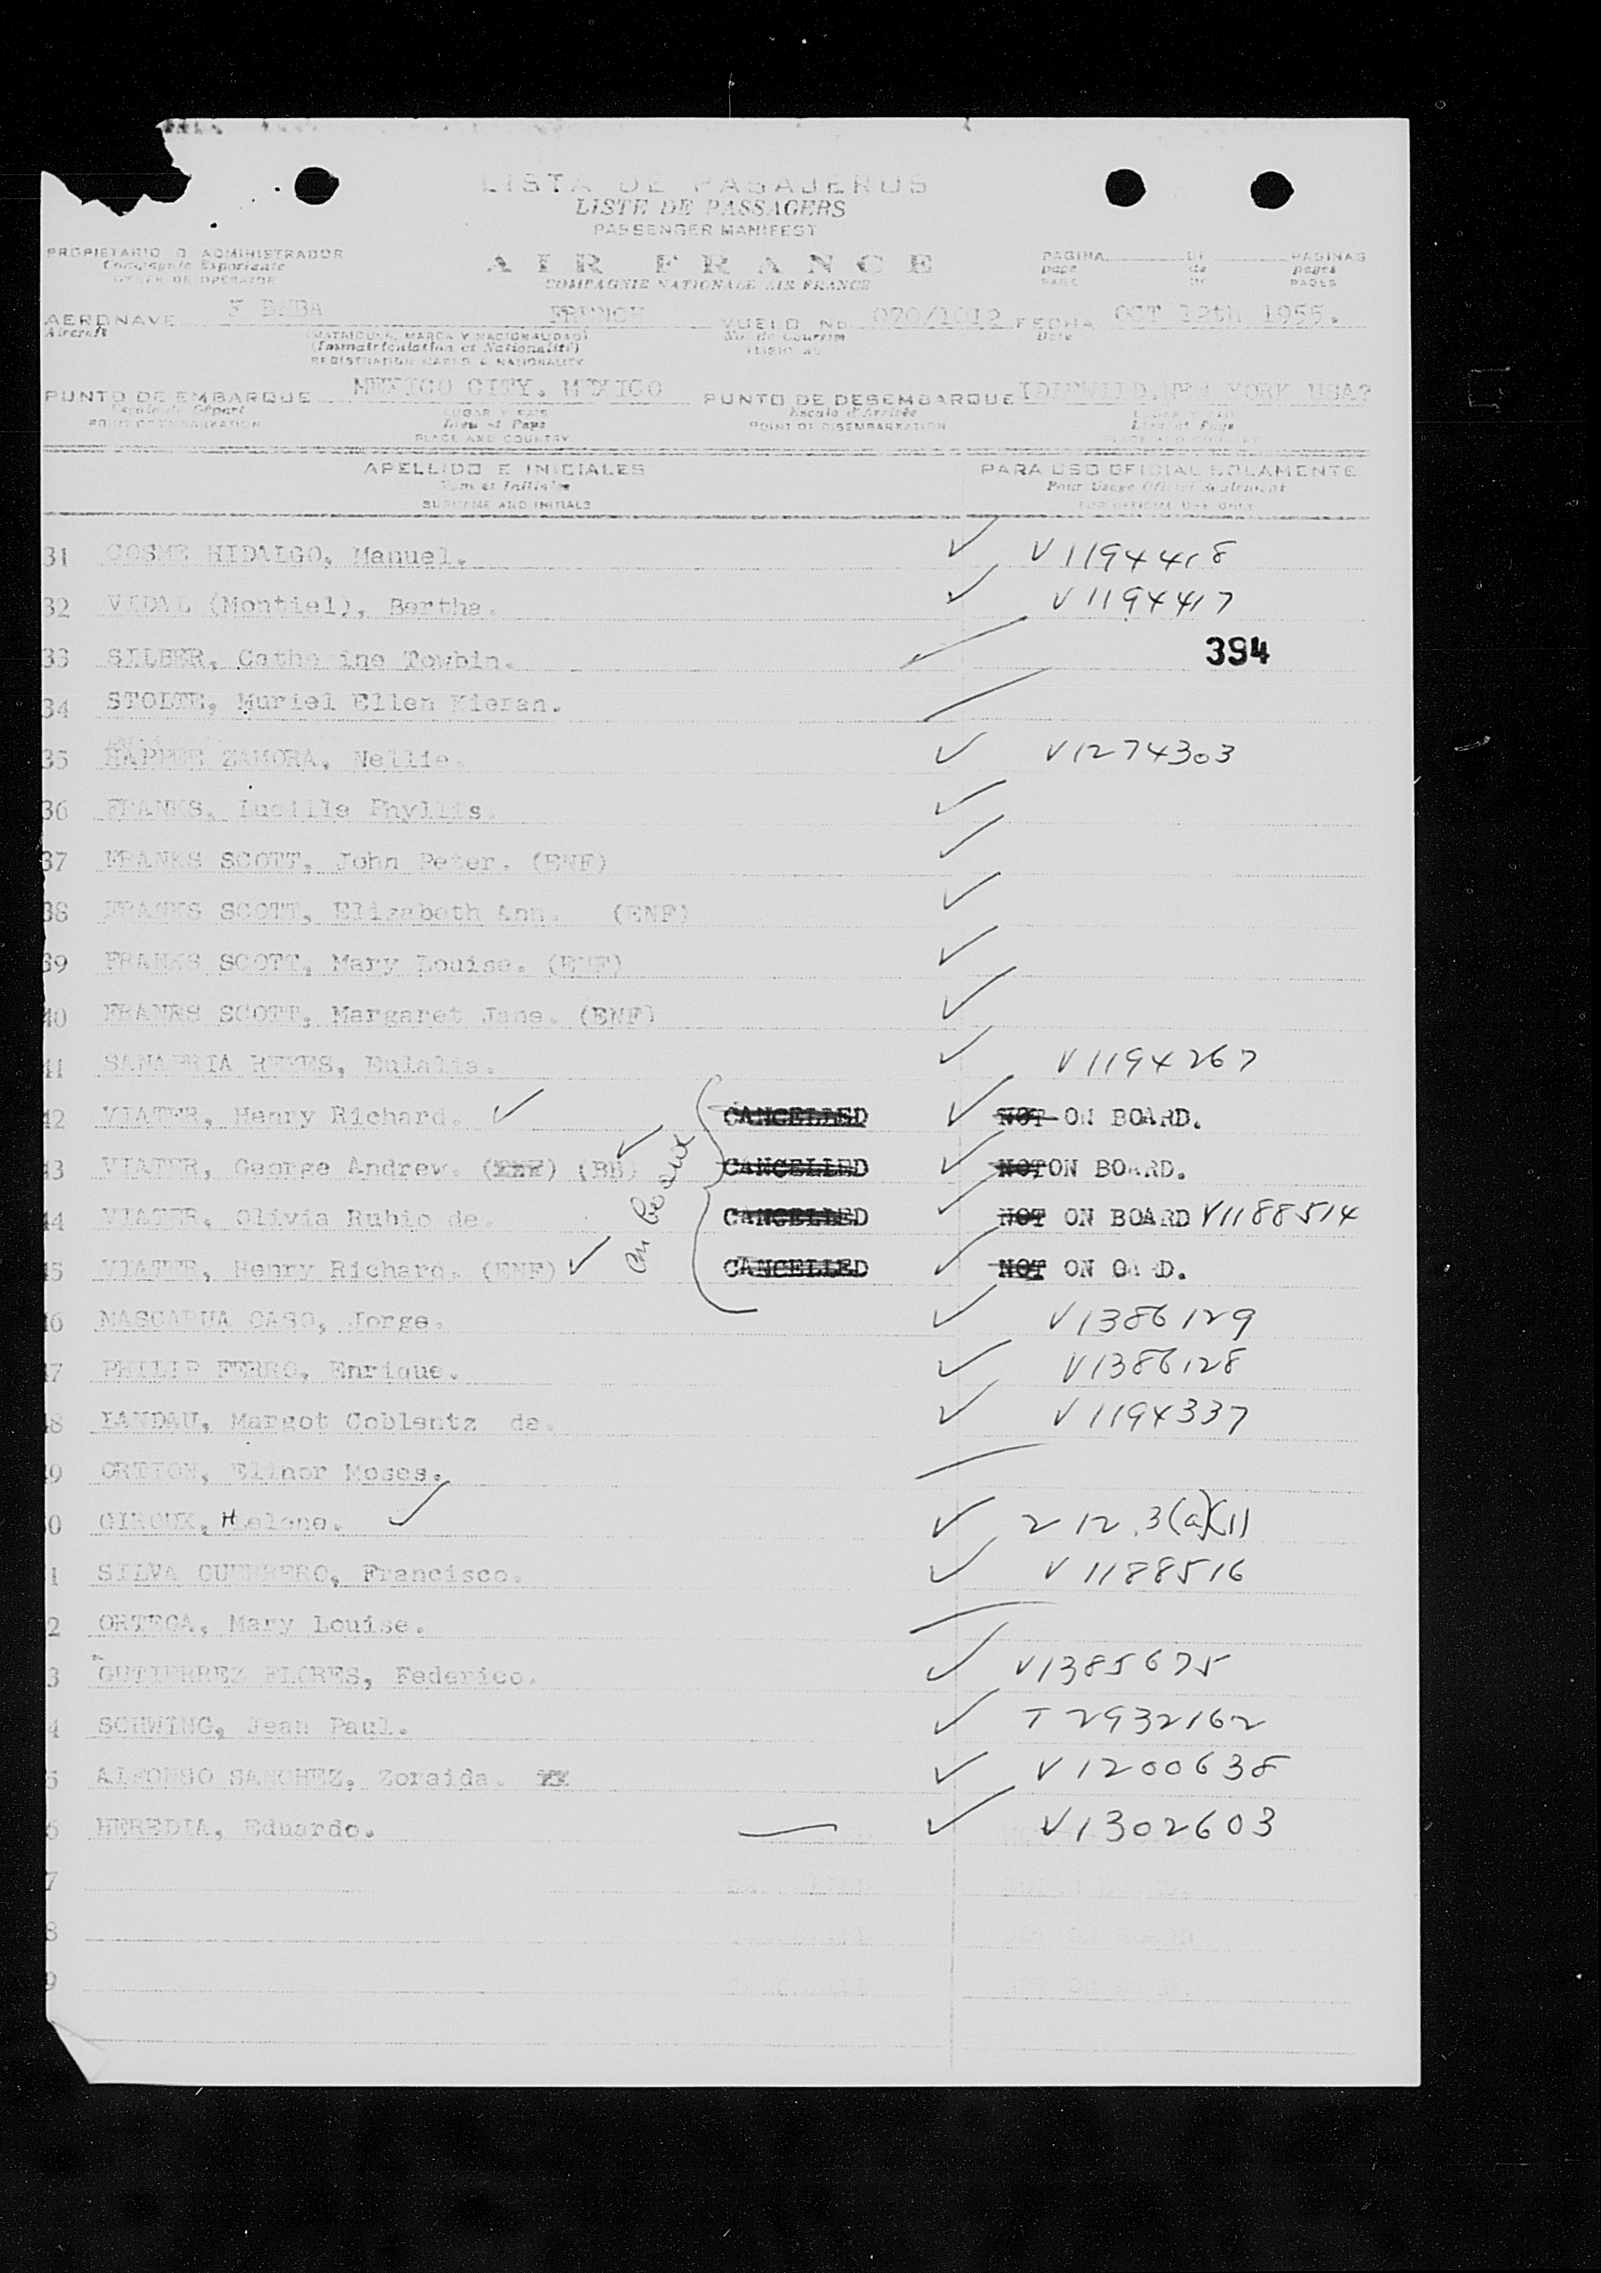 LISTA DE PASAJEROS
LISTE DE PASSAGERS
PASSENGER MANIFEST
PROPIETARIO O ADMINISTRADOR
Compagnie Exploitante
OWNER OR OPERATOR
AIR FRANCE
COMPAGNIE NATIONALE AIR FRANCE
PAGINA DE PAGINAS
page de pages
PAGE OF PAGES
AERONAVE FRENCH VUELO No 070/1012 FECHA OCT 12th 1955.
Aircraft
(MATRICULA, MARCA Y NACIONALIDAD)
(Immatriculation et Nationalité)
REGISTRATION MARKS & NATIONALITY
No. de Courrier
FLIGHT No
Date
PUNTO DE EMBARQUE MEXICO CITY. MEXICO PUNTO DE DESEMBARQUE IDLEWILD.NEW YORK USA?
Escale de Départ
POINT OF EMBARKATION
LUGAR Y PAIS
Lieu et Pays
PLACE AND COUNTRY
Escale d'Arrivée
POINT OF DISEMBARKATION
LUGAR Y PAIS
Lieu et Pays
PLACE AND COUNTRY
APELLIDO E INICIALES PARA USO OFICIAL SOLAMENTE
Nom et Initiales Pour Usage Officiel Seulement
SURNAME AND INITIALS FOR OFFICIAL USE ONLY
31 COSME HIDALGO, Manuel. ✓ V1194418
32 VIDAL (Montiel), Bertha. ✓ V1194417
33 SILBER, Cathe ine Towbin. 394
34 STOLTE, Muriel Ellen Kieran.
35 ZAMORA, Nellie. ✓ V1274303
36 FRANKS, Lucille Phyllis. ✓
37 FRANKS SCOTT, John Peter. (ENF) ✓
38 FRANKS SCOTT, Elizabeth Ann. (ENF) ✓
39 FRANKS SCOTT, Mary Louise. (ENF) ✓
40 FRANKS SCOTT, Margaret Jane. (ENF) ✓
41 SANABRIA REYES, Eulalia. ✓ V1194267
42 VIATER, Henry Richard. ✓ CANCELLED ✓ NOT ON BOARD.
43 VIATER, George Andrew. (ENF) (BB) ✓ CANCELLED ✓ NOT ON BOARD.
44 VIATER, Olivia Rubio de. CANCELLED ✓ NOT ON BOARD V1188514
45 VIATER, Henry Richard. (ENF) ✓ CANCELLED ✓ NOT ON OA D.
on board
46 MASCARUA CASO, Jorge. ✓ V1386129
47 PHILIP FERRO, Enrique. ✓ V1386128
48 LANDAU, Margot Coblentz de. ✓ V1194337
49 ORTTON, Elinor Moses.
0 GIROUX, Helene. ✓ ✓ 212.3(a)(1)
1 SILVA GUERRERO, Francisco. ✓ V1188516
2 ORTEGA, Mary Louise.
3 GUTIERREZ FLORES, Federico. ✓ V1385675
4 SCHWING, Jean Paul. ✓ T2932162
5 ALFONSO SANCHEZ, Zoraida. ✓ V1200638
6 HEREDIA, Eduardo. ✓ V1302603
7
8
9